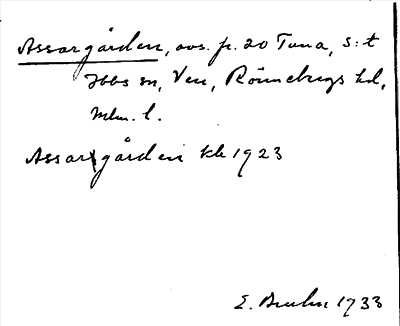 Assargården, avs. fr. 20 Tuna, S:t
Ibbs sn, Ven, Rönnebergs hd,
Mlm. l.
Assargården kk 1923
E. Bruhn 1733